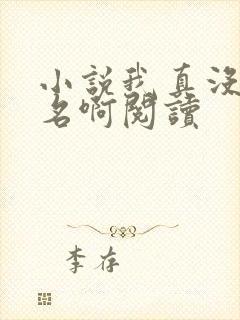 小說我真沒
名啊閱讀
李存